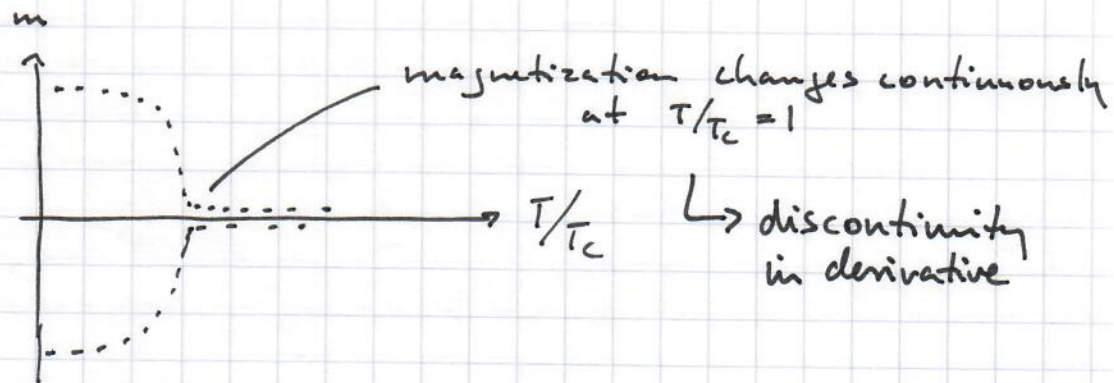 m
magnetization changes continuously
at T/Tc = 1
T/Tc
↳ discontinuity
in derivative